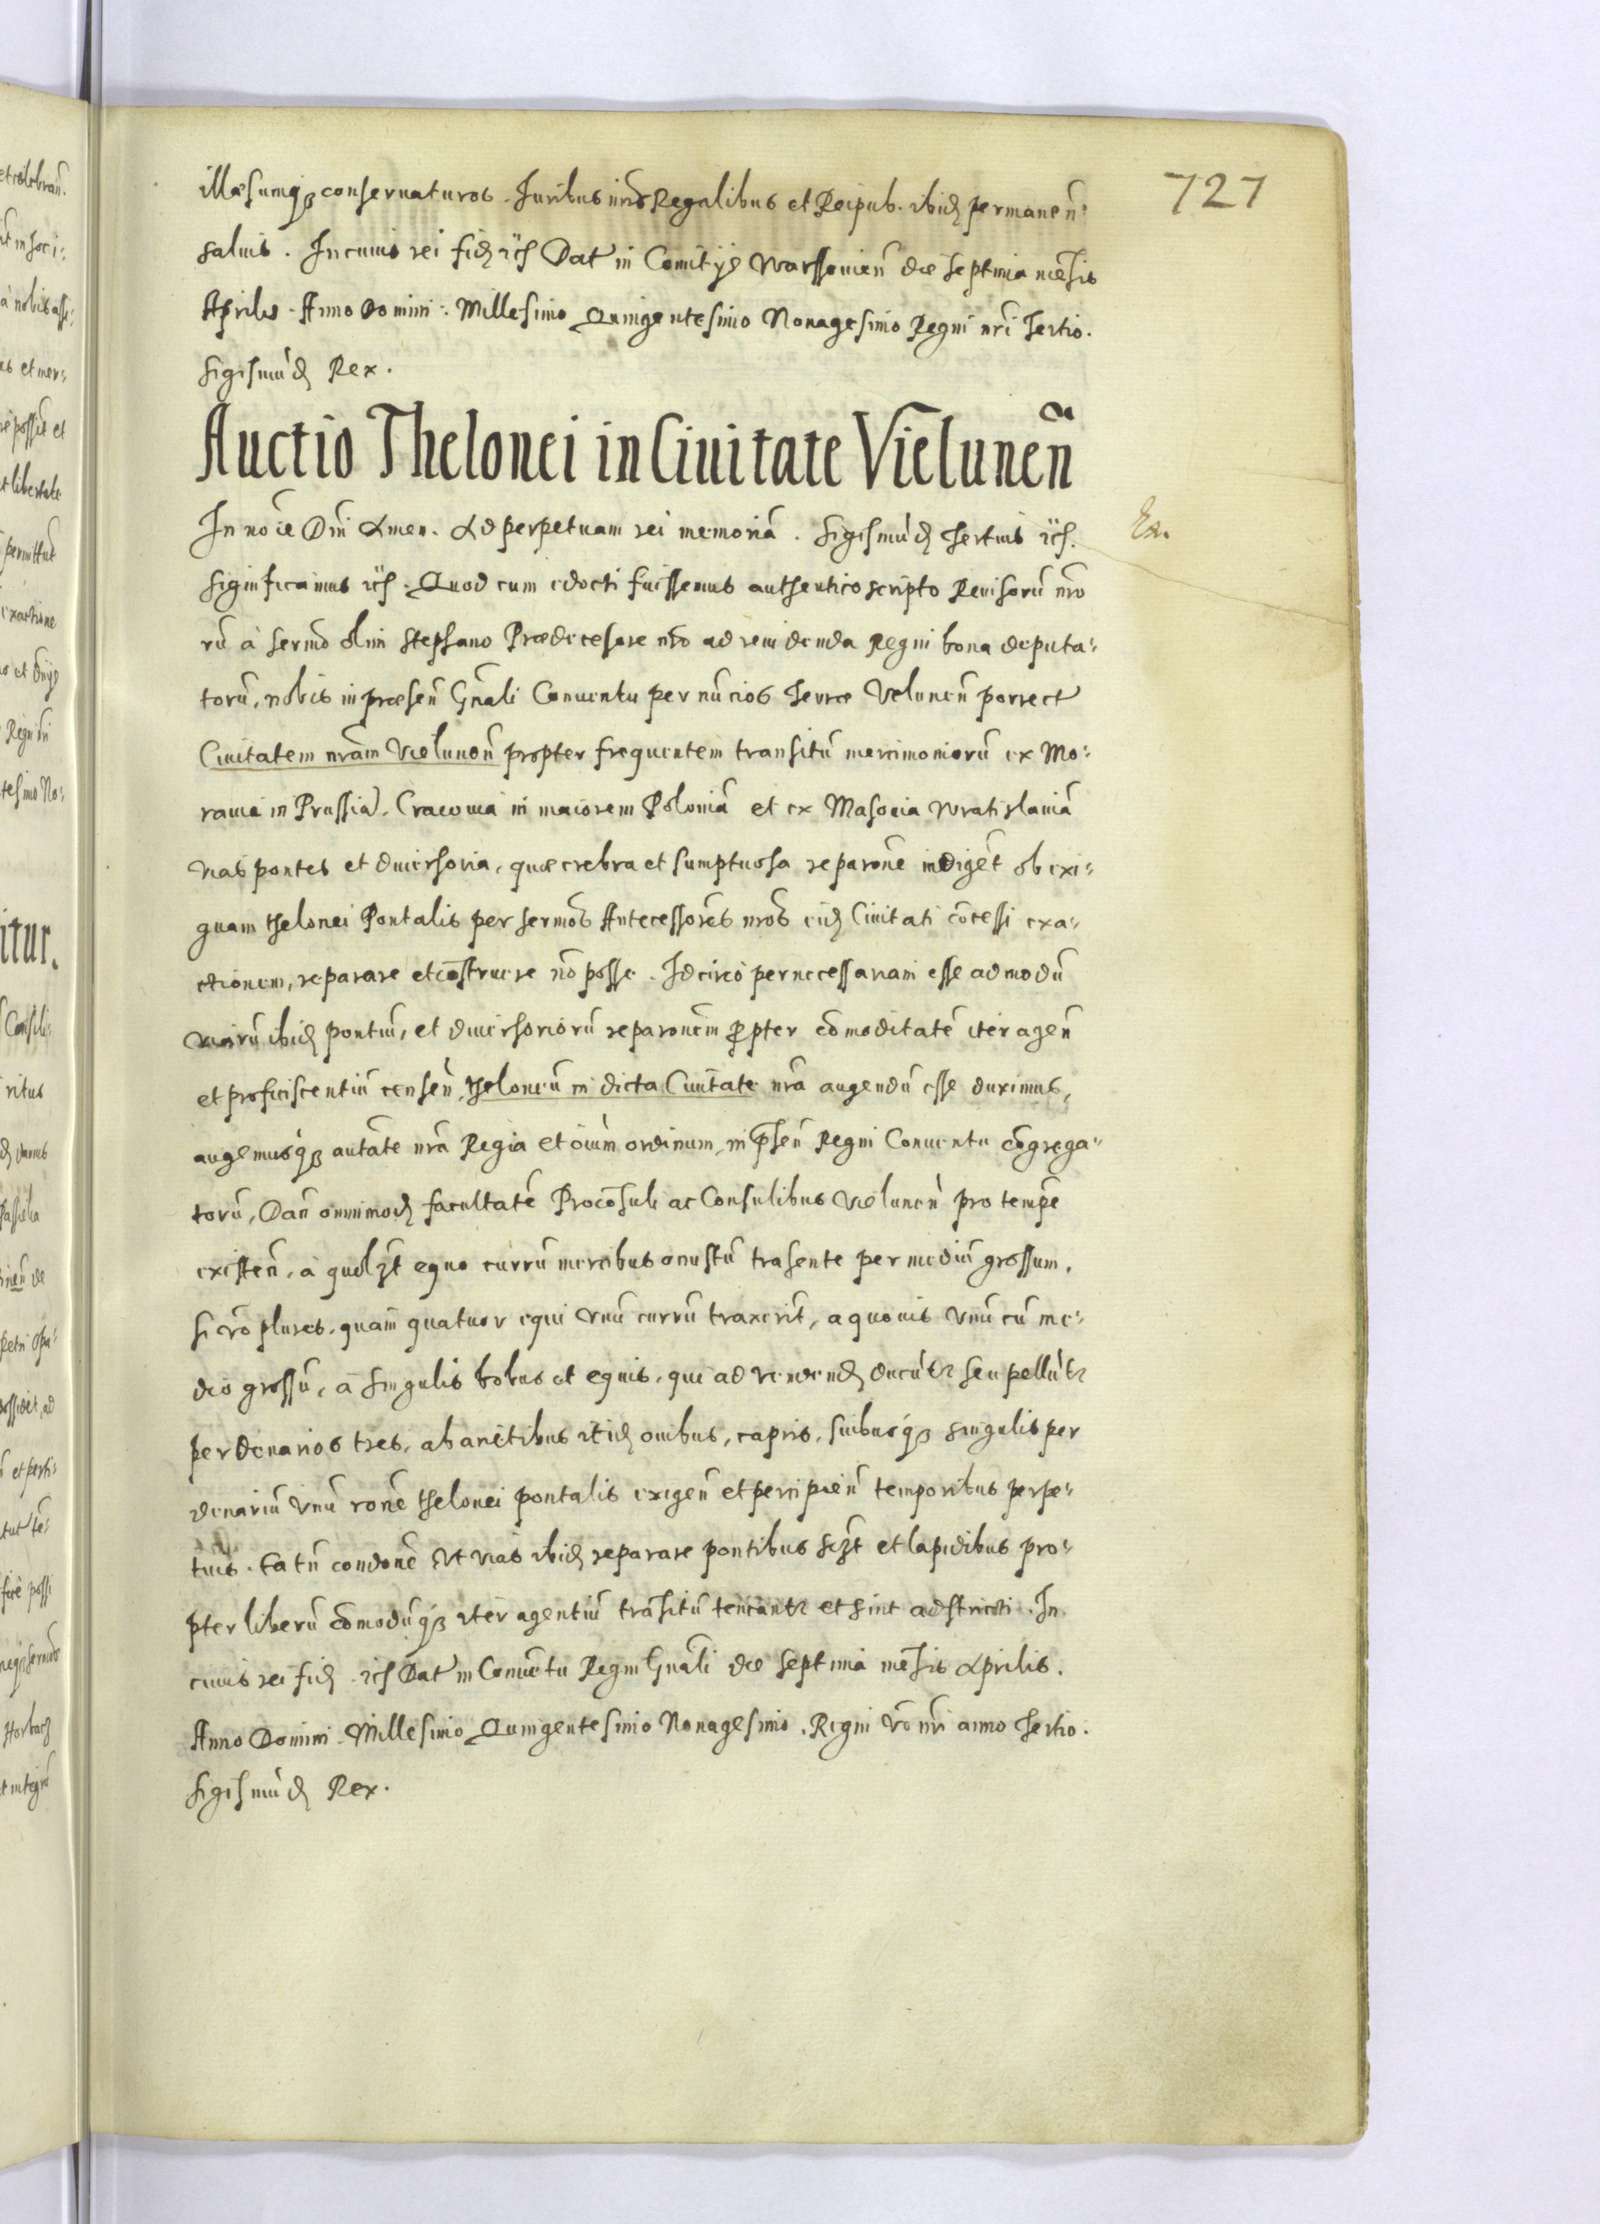 727
illæsumqꝫ conseruaturos. Iuribus nr̃is Regalibus et Reipub. ibid permanen̄
saluis. In cuius rei fid etc Dat in Comitijs Warssouien̄ die septima mēsis
Aprilis. Anno Domini: Millesimo Quingentesimo Nonagesimo Regni nr̃i tertio.
Sigismūd Rex.
Auctio Thelonei in Ciuitate Vielunen̄
In noīe Dn̄i Amen. Ad perpetuam rei memoriā. Sigismūd tertius etc.
Ex.
significamus etc. Quod cum edocti fuissemus authentico scripto Reuisorū nr̃o
rū à serm̄o olim Stephano Prædecesore nr̃o ad reuidenda Regni bona deputa-
torū, nobis in præsen̄ Gn̄ali Conuentu per nūcios terræ Velunen̄ porrect
Ciuitatem nr̃am Vielunen̄ propter frequentem transitū mercimoniorū ex Mo-
rauia in Prussiā, Cracouia in maiorem Poloniā et ex Masouia Wratislauiā
vias pontes et diuersoria, quæ crebra et sumptuosa reparōne indigēt ob exi-
guam thelonei Pontalis per sermōs Antecessores nr̃os eid Ciuitati cōcessi exa-
ctionem, reparare et cōstruere nō posse. Idcircò pernecessariam esse admodū
viarū ibid pontiū, et diuersoriorū reparōnem ꝓpter cōmoditatē iter agen̄
et proficiscentiū censen̄, theloneū in dicta Ciuitate nr̃a augendū esse duximus,
augemusqꝫ autāte nr̃a Regia et oīum ordinum, in p̄sen̄ Regni Conuentu cōgrega-
torū, Dan̄ omnimod facultatē Procōsuli ac Consulibus Vielunen̄ pro tempe
existen̄, à quolꝫt equo currū mercibus onustū trahente per mediū grossum,
si vō plures, quàm quatuor equi vnū currū traxerīt, a quouis vnū cū me-
dio grossū, à singulis bobus et equis, qui ad vendend ducūtr seu pellūtr
per denarios tres, ab arietibus itid ouibus, capris, suibusqꝫ singulis per
denariū vnū rōne thelonei pontalis exigen̄ et percipien̄ temporibus perpe-
tuis. Ea tn̄ condōne vt vias ibid reparare pontibus scꝫt et lapidibus pro-
pter liberū cōmodūqꝫ iter agentiū trāsitū teneantr et sint adstricti. In
cuius rei fid etc Dat in Conuētu Regni Gn̄ali die septima mēsis Aprilis.
Anno Domini Millesimo Quingentesimo Nonagesimo. Regni vō nr̃i anno tertio.
Sigismūd Rex.